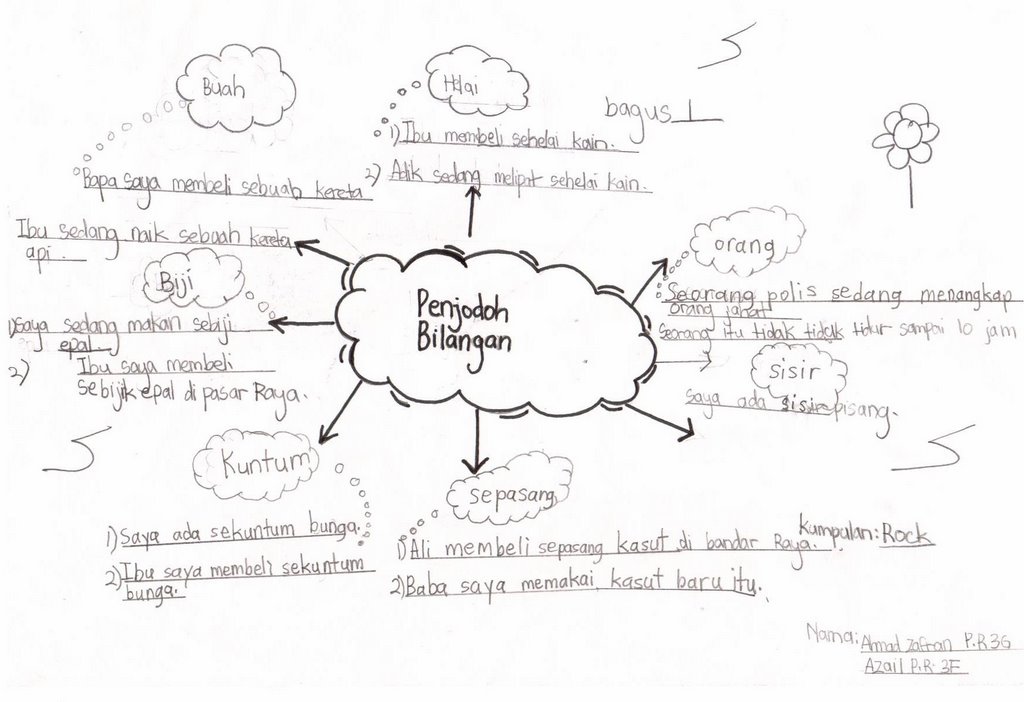 Buah
Bapa saya membeli sebuah kereta
Ibu sedang naik sebuah kereta
api.
Helai
1) Ibu membeli sehelai kain.
2) Adik sedang melipat sehelai kain.
bagus 1
orang
Seorang polis sedang menangkap
orang jahat
Seorang itu tidak tidak tidur sampai 10 jam
Biji
1) Saya sedang makan sebiji
epal.
2) Ibu saya membeli
sebijik epal di pasar Raya.
Penjodoh
Bilangan
sisir
Saya ada sisir pisang.
Kuntum
1) Saya ada sekuntum bunga.
2) Ibu saya membeli sekuntum
bunga.
sepasang
1) Ali membeli sepasang kasut di bandar Raya.
2) Baba saya memakai kasut baru itu.
Kumpulan: Rock
Nama: Ahmad Zafran P.R 3G
Azail P.R. 3F